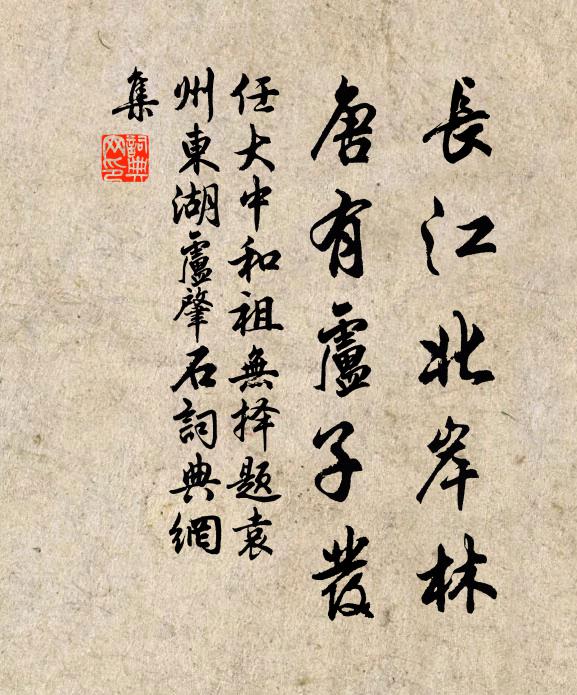 長江北岸林
唐有盧子發
任大中和祖無择題袁
州東湖盧肇石詞典網
集
詞典
網印